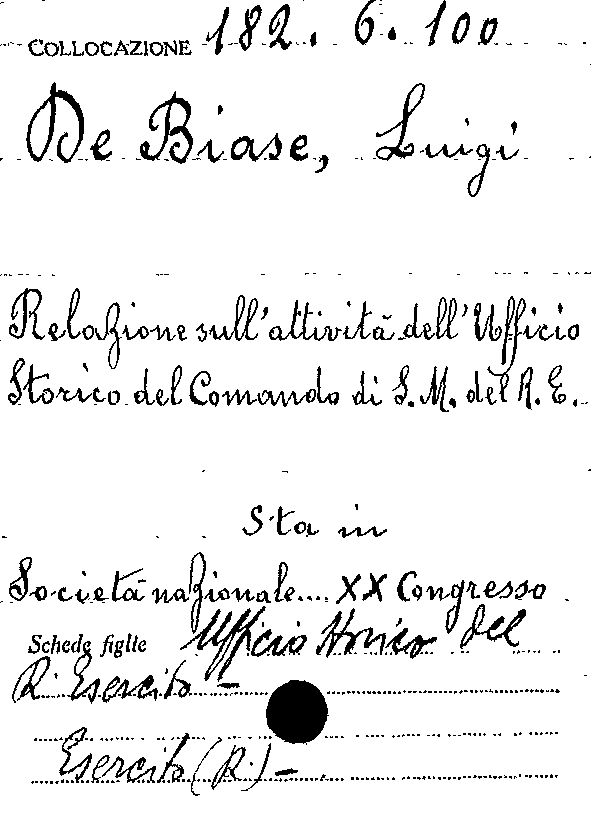 COLLOCAZIONE 182. 6. 100
De Biase, Luigi
Relazione sull'attività dell'Ufficio
Storico del Comando di S. M. del R. E.
Sta in
Società nazionale.... XX Congresso
Schede figlie Ufficio Storico del
R. Esercito –
Esercito (R.) –